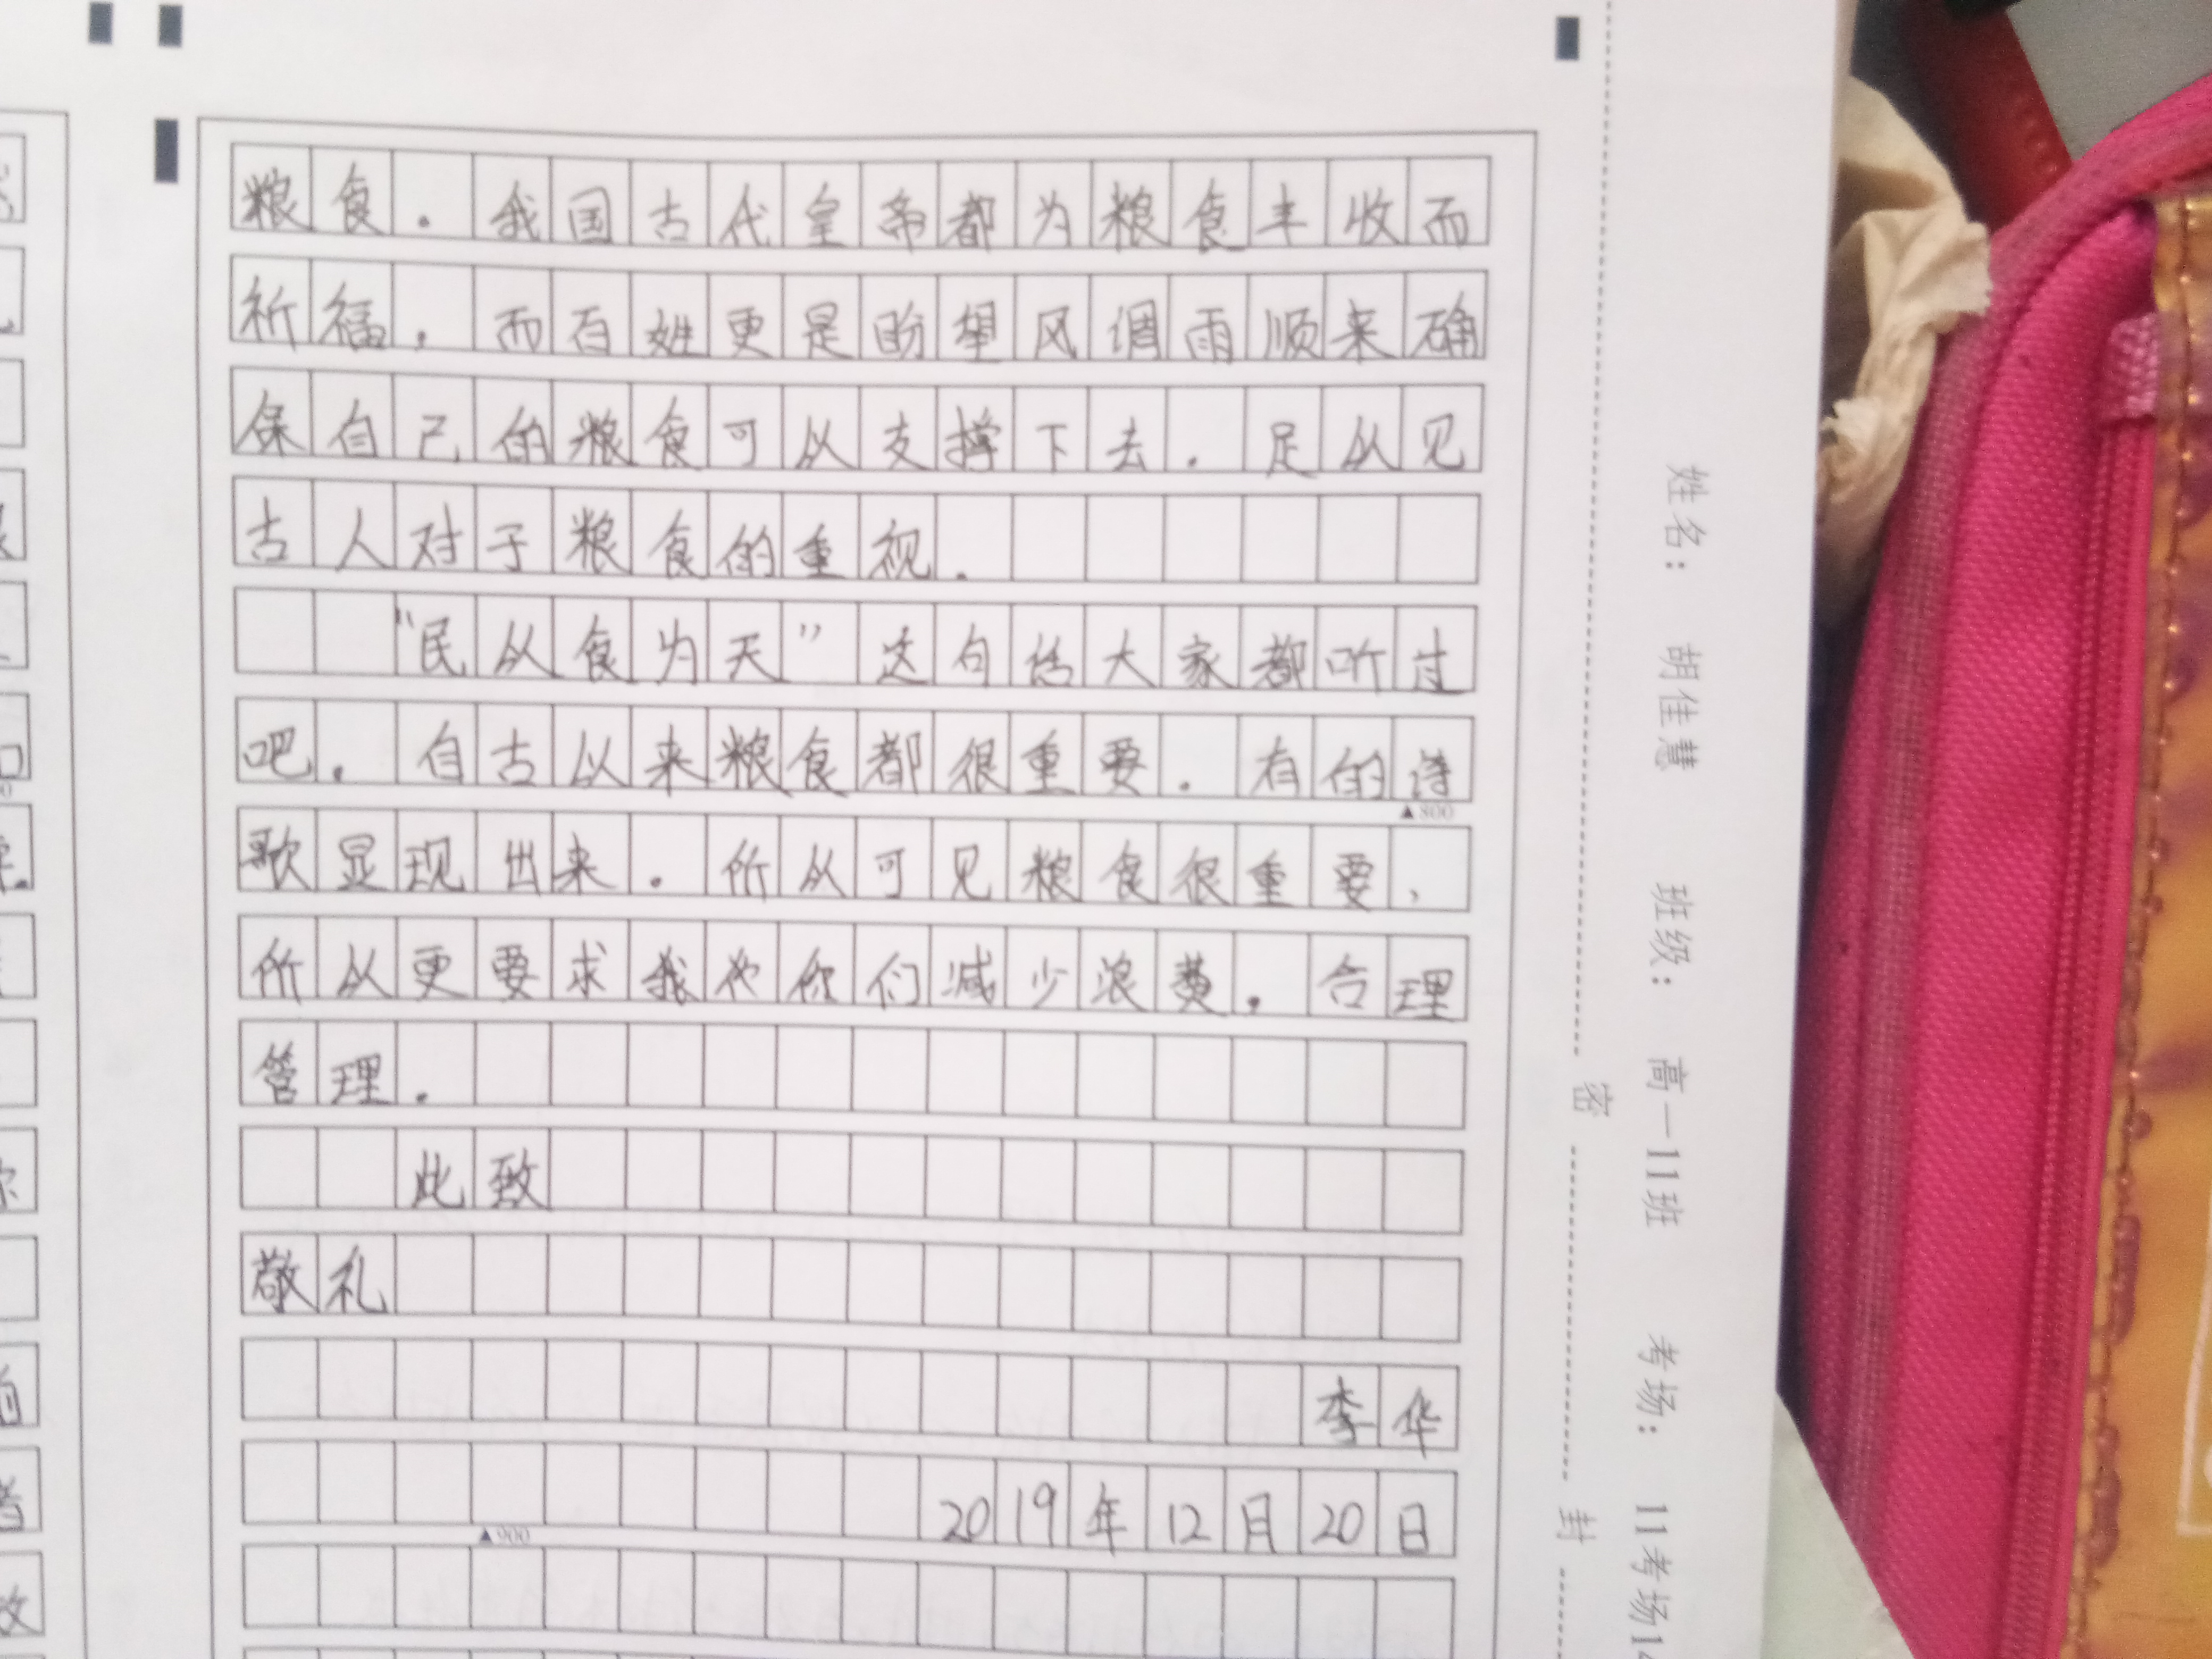 粮食.我国古代皇帝都为粮食丰收而
祈福,而百姓更是盼望风调雨顺来确
保自己的粮食可以支撑下去.足以见
古人对于粮食的重视.
“民以食为天”这句话大家都听过
吧.自古以来粮食都很重要.有的诗
▲800
歌显现出来.所以可见粮食很重要,
所以更要求我和你们减少浪费.合理
管理.
此致
敬礼
李华
2019年12月20日
▲900
姓名: 胡佳慧 班级: 高一11班 考场: 11考场14
密
封